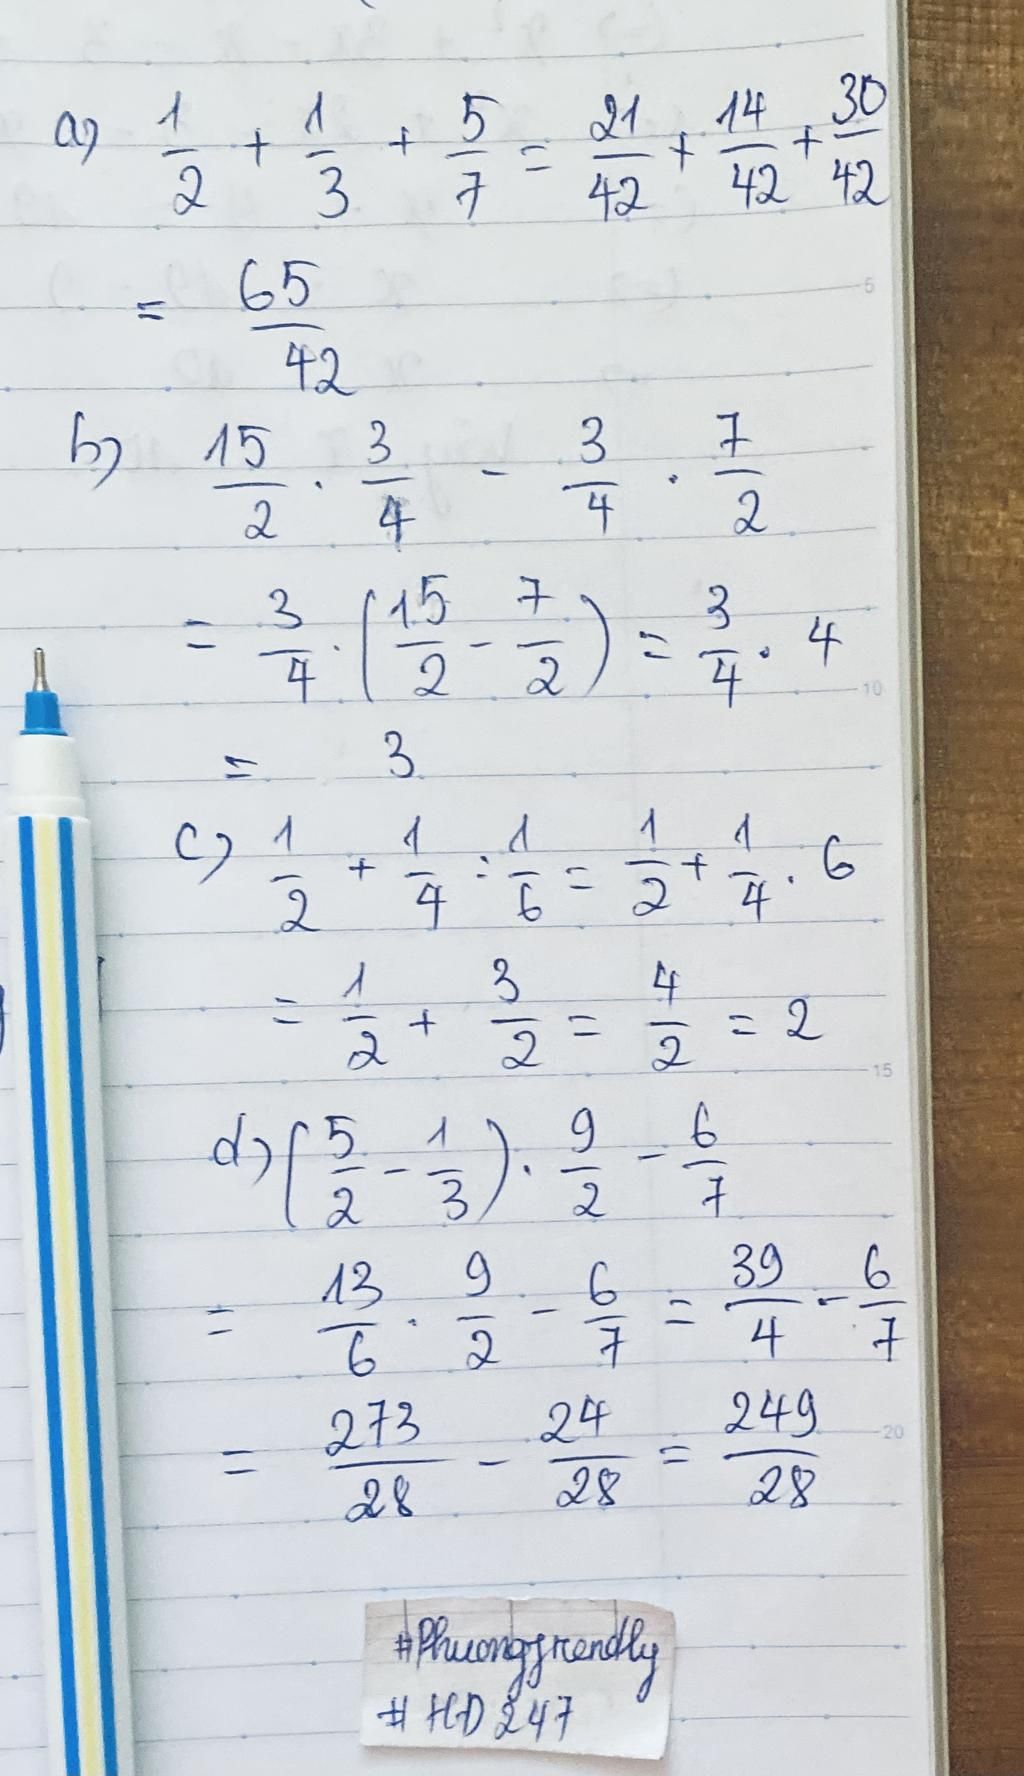 a) 1/2 + 1/3 + 5/7 = 21/42 + 14/42 + 30/42
= 65/42
b) 15/2 . 3/4 - 3/4 . 7/2
= 3/4 . (15/2 - 7/2) = 3/4 . 4
= 3
c) 1/2 + 1/4 : 1/6 = 1/2 + 1/4 . 6
= 1/2 + 3/2 = 4/2 = 2
d) (5/2 - 1/3) . 9/2 - 6/7
= 13/6 . 9/2 - 6/7 = 39/4 - 6/7
= 273/28 - 24/28 = 249/28
#Phuongfrendly
#HD247
5
10
15
20